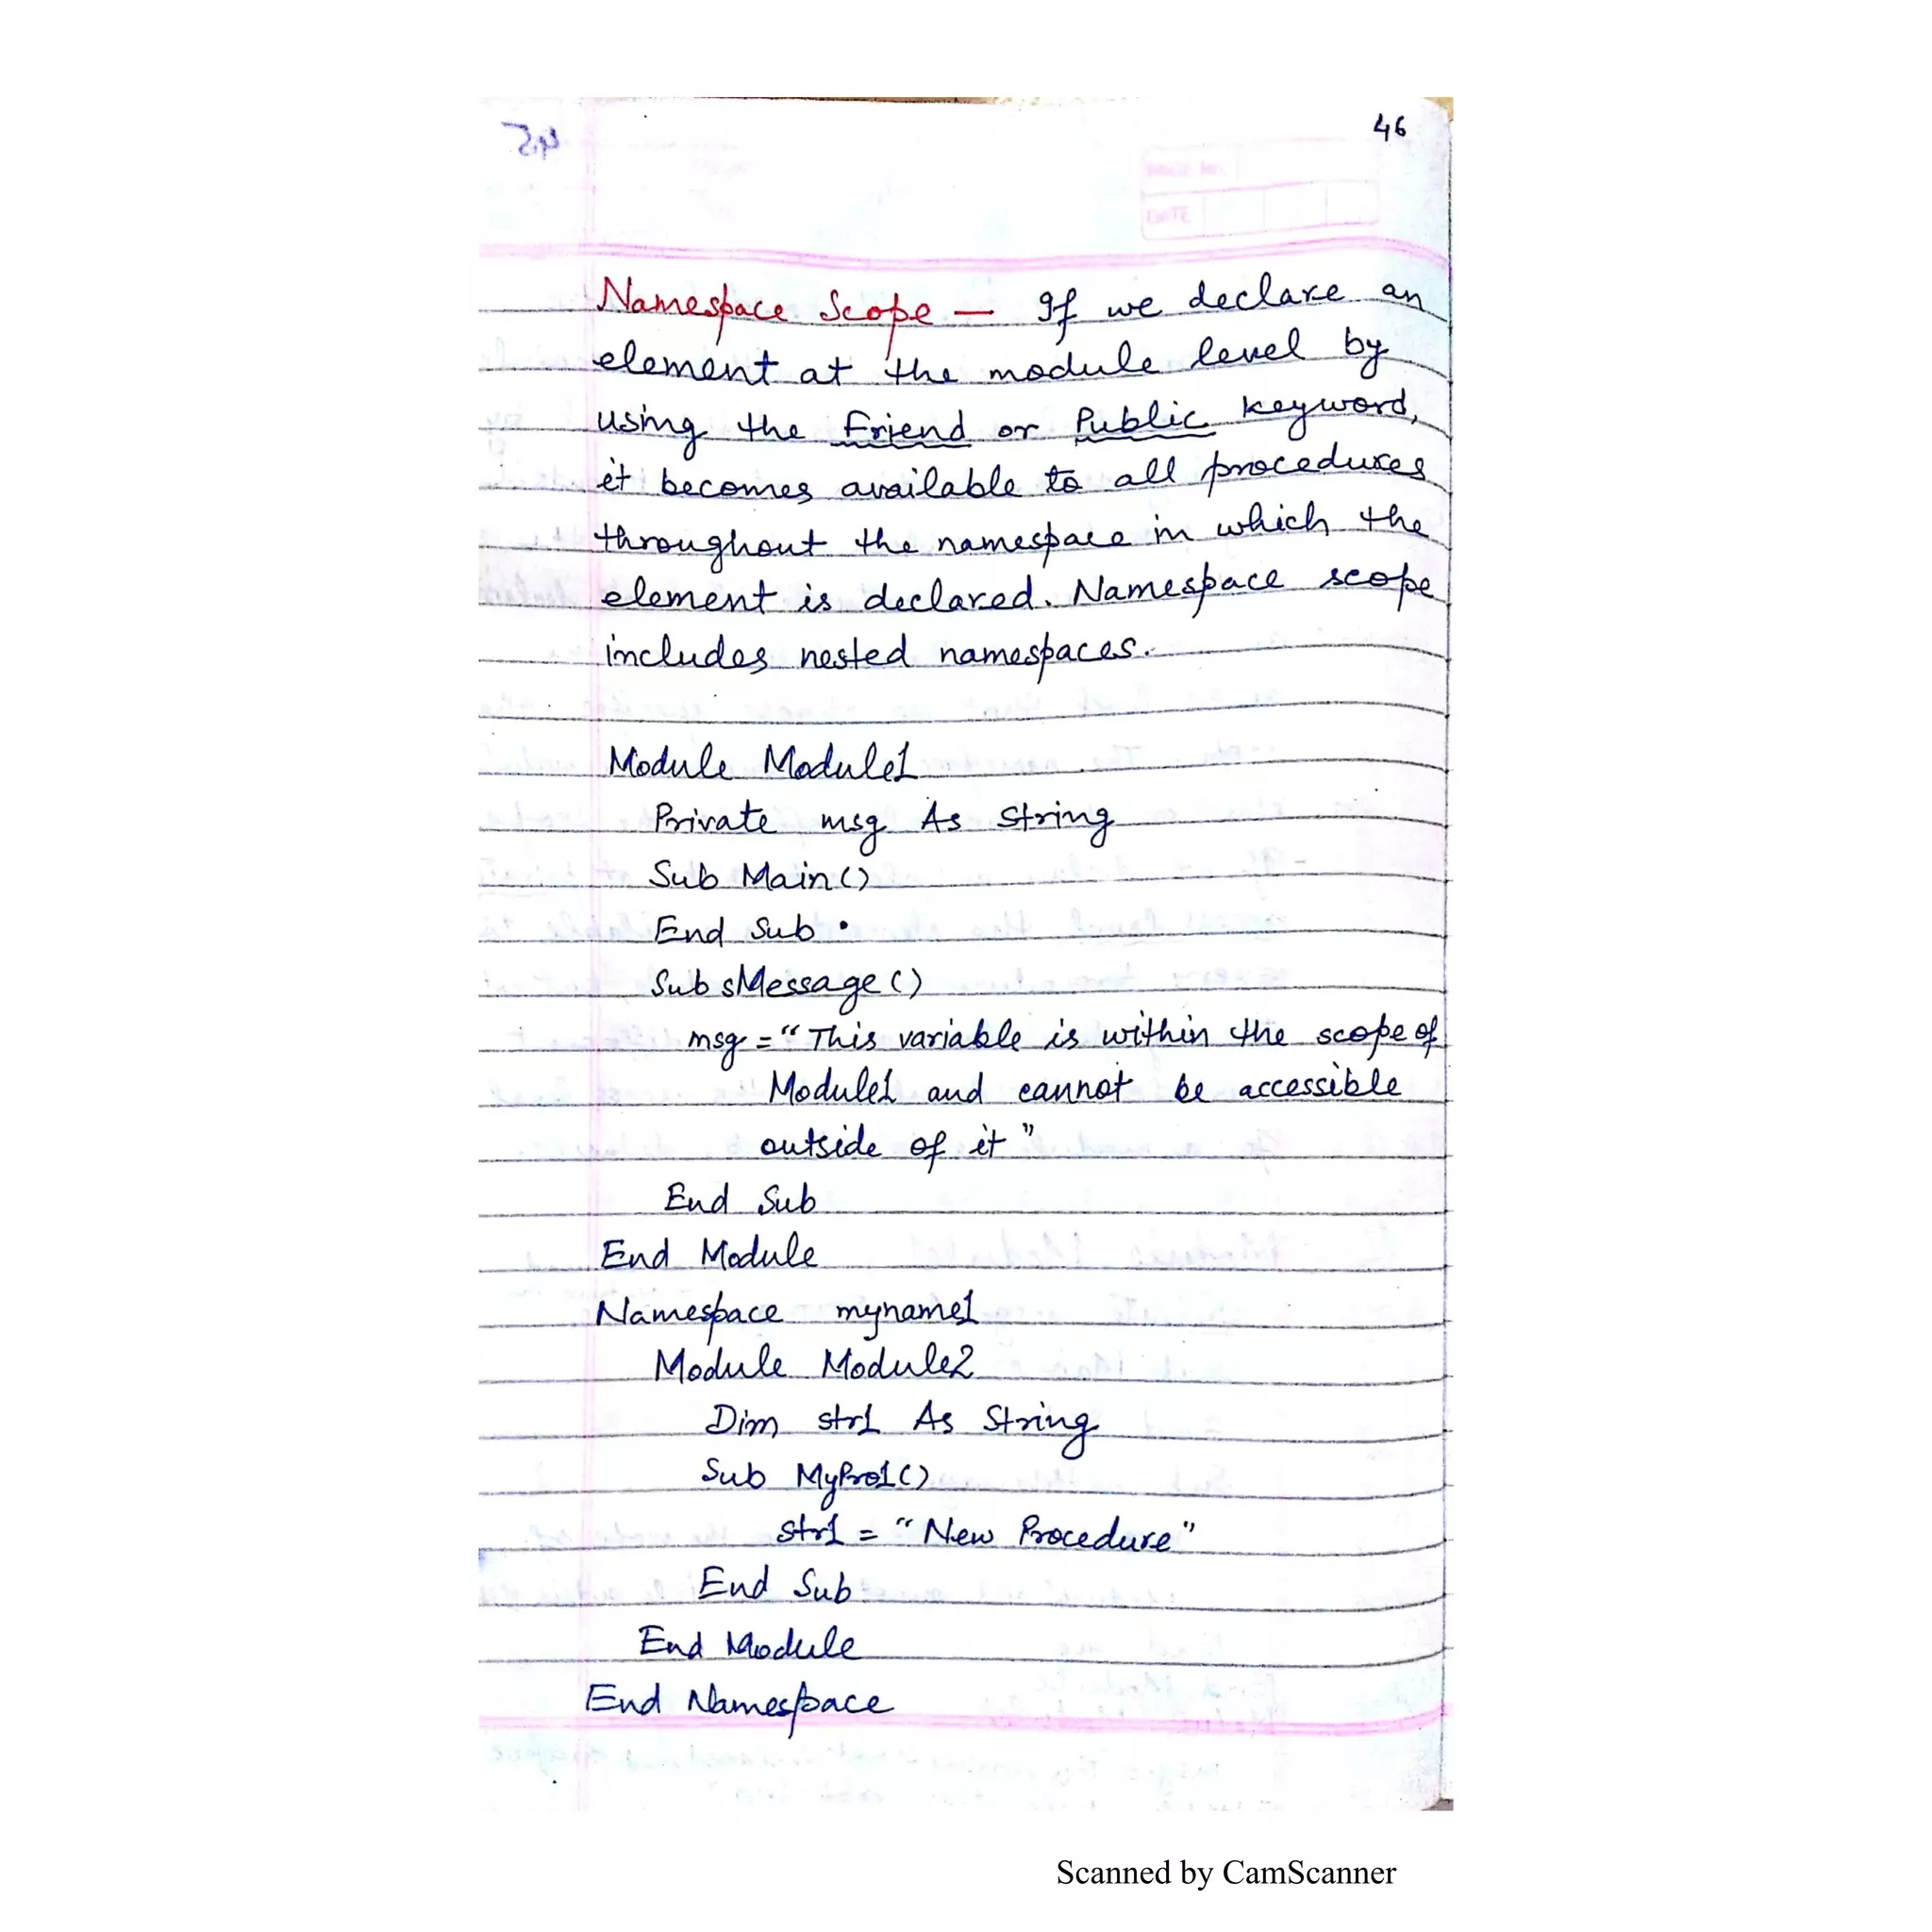 46
PAGE NO.
DATE
Namespace Scope — If we declare an
element at the module level by
using the Friend or Public keyword,
it becomes available to all procedures
throughout the namespace in which the
element is declared. Namespace scope
includes nested namespaces.
Module Module1
Private msg As String
Sub Main()
End Sub
Sub sMessage()
msg = "This variable is within the scope of
Module1 and cannot be accessible
outside of it"
End Sub
End Module
Namespace myname1
Module Module2
Dim str1 As String
Sub MyPro1()
str1 = "New Procedure"
End Sub
End Module
End Namespace
Scanned by CamScanner